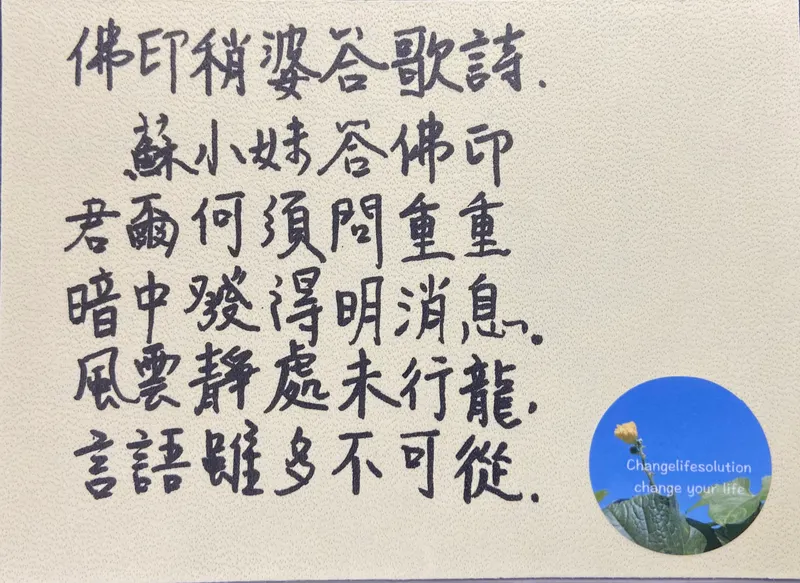 佛印稍婆答歌詩.
蘇小妹答佛印
君爾何須問重重
暗中發得明消息.
風雲靜處未行龍.
言語雖多不可從.
Changelifesolution
change your life